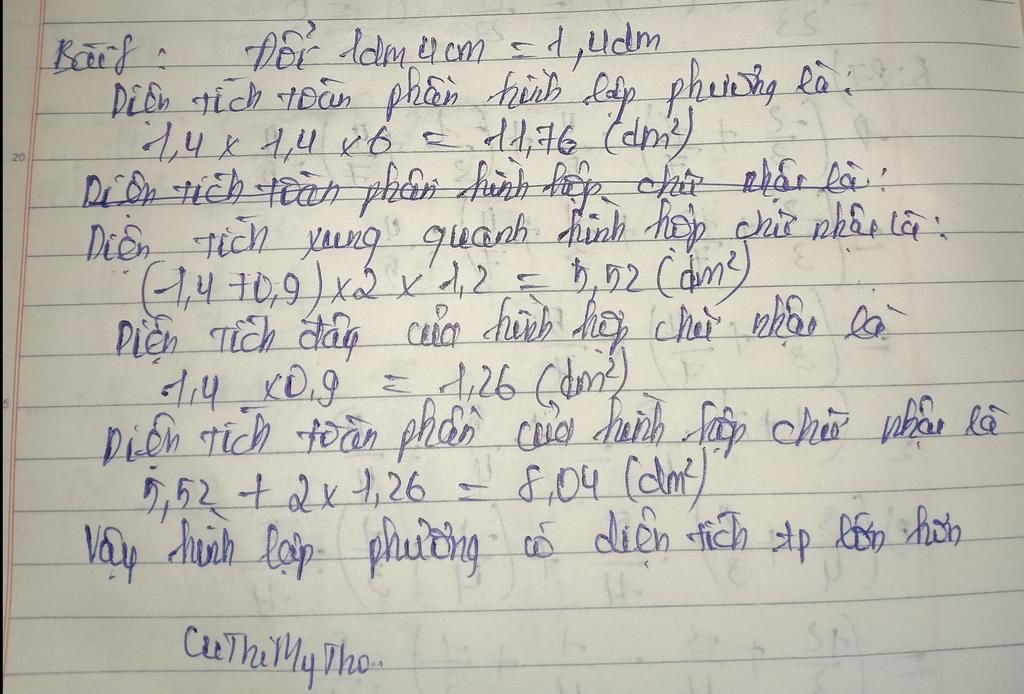 Bài 8 : Đổi 1dm 4cm = 1,4dm
Diện tích toàn phần hình lập phương là:
1,4 x 1,4 x 6 = 11,76 (dm²)
Diện tích toàn phần hình hộp chữ nhật là:
Diện tích xung quanh hình hộp chữ nhật là:
(1,4 + 0,9) x 2 x 1,2 = 5,52 (dm²)
Diện tích đáy của hình hộp chữ nhật là
1,4 x 0,9 = 1,26 (dm²)
Diện tích toàn phần của hình hộp chữ nhật là
5,52 + 2 x 1,26 = 8,04 (dm²)
Vậy hình lập phương có diện tích tp lớn hơn
CuThiMyTho.
20
5